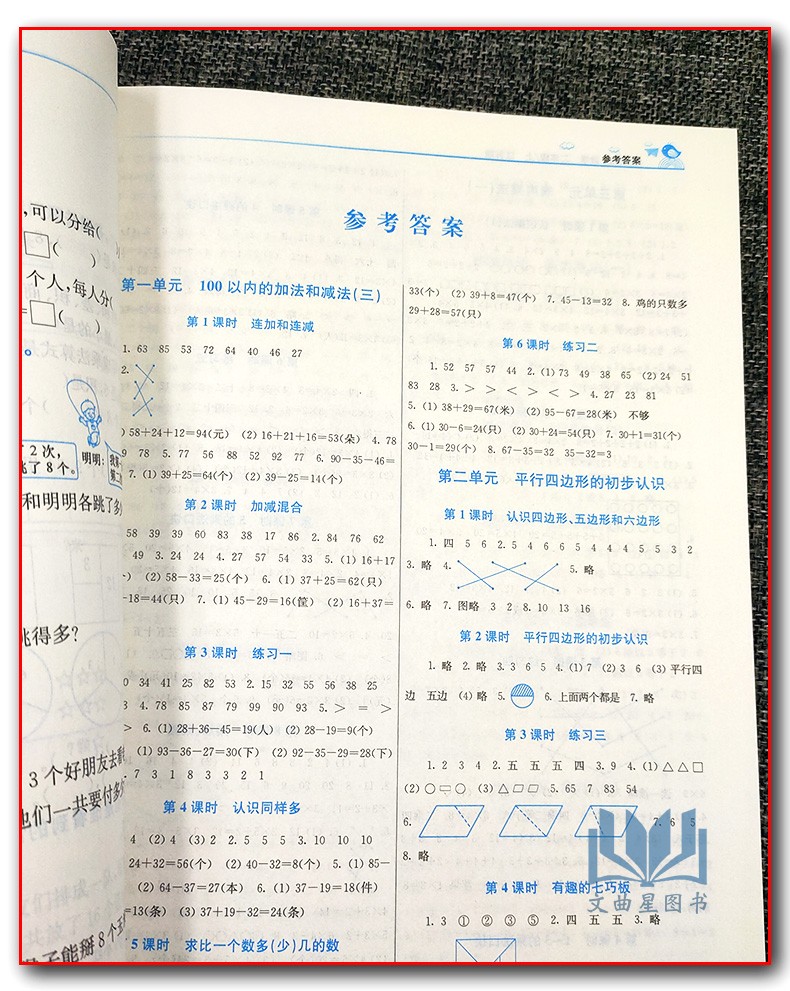 ,可以分给(
□(  )
个人,每人分(
=□(  )
2次,
了8个。
明明:
和明明各跳了多
得多?
3个好朋友去
们一共要付多
子能掰8个
参考答案
参考答案
第一单元 100以内的加法和减法(三)
第1课时 连加和连减
1. 63 85 53 72 64 40 46 27
2.
) 58+24+12=94(元) (2) 16+21+16=53(朵) 4. 78
9 78 5. 77 56 88 52 92 77 6. 90-35-46=
7. (1) 39+25=64(个) (2) 39-25=14(个)
第2课时 加减混合
58 39 39 60 83 38 17 86 2. 84 76 62
49 3. 24 24 4. 27 57 54 33 5. (1) 16+17
-) (2) 58-33=25(个) 6. (1) 37+25=62(只)
-18=44(只) 7. (1) 45-29=16(筐) (2) 16+37=
第3课时 练习一
0 34 41 25 82 53 2. 15 32 55 56 38 25
3 4. 78 85 87 79 99 90 93 5. > = >
> 6. (1) 28+36-45=19(人) (2) 28-19=9(个)
(1) 93-36-27=30(下) (2) 92-35-29=28(下)
7 3 1 8 3 3 2 1
第4课时 认识同样多
4 (2) 4 (3) 2 2. 5 5 5 3. 10 10 10
24+32=56(个) (2) 40-32=8(个) 5. (1) 85-
(2) 64-37=27(本) 6. (1) 37-19=18(件)
=13(条) (3) 37+19-32=24(条)
5课时 求比一个数多(少)几的数
33(个) (2) 39+8=47(个) 7. 45-13=32 8. 鸡的只数多
29+28=57(只)
第6课时 练习二
1. 52 57 57 44 2. (1) 73 49 38 65 (2) 24 51
83 28 3. > > < > < > 4. 27 23 81
5. (1) 38+29=67(米) (2) 95-67=28(米) 不够
6. (1) 30-6=24(只) (2) 30+24=54(只) 7. 30+1=31(个)
30-1=29(个) 8. 67-35=32 35-32=3
第二单元 平行四边形的初步认识
第1课时 认识四边形、五边形和六边形
1. 四 5 6 2. 5 4 6 6 5 4 4 4 5 5 3 2
3. 略 4. 5. 略
6. 略 7. 图略 3 2 8. 10 13 16
第2课时 平行四边形的初步认识
1. 略 2. 略 3. 3 6 5 4. (1) 7 (2) 3 6 (3) 平行四
边 五边 (4) 略 5. 6. 上面两个都是 7. 略
第3课时 练习三
1. 2 3 4 2. 五 五 五 四 3. 9 4. (1) △△□
(2) ○▽○ (3) △□□ 5. 65 7 83 54
6. 7. 6 5
8. 略
第4课时 有趣的七巧板
1. 3 ① ② ③ ⑤ 2. 四 五 五 3. 略
文曲星图书